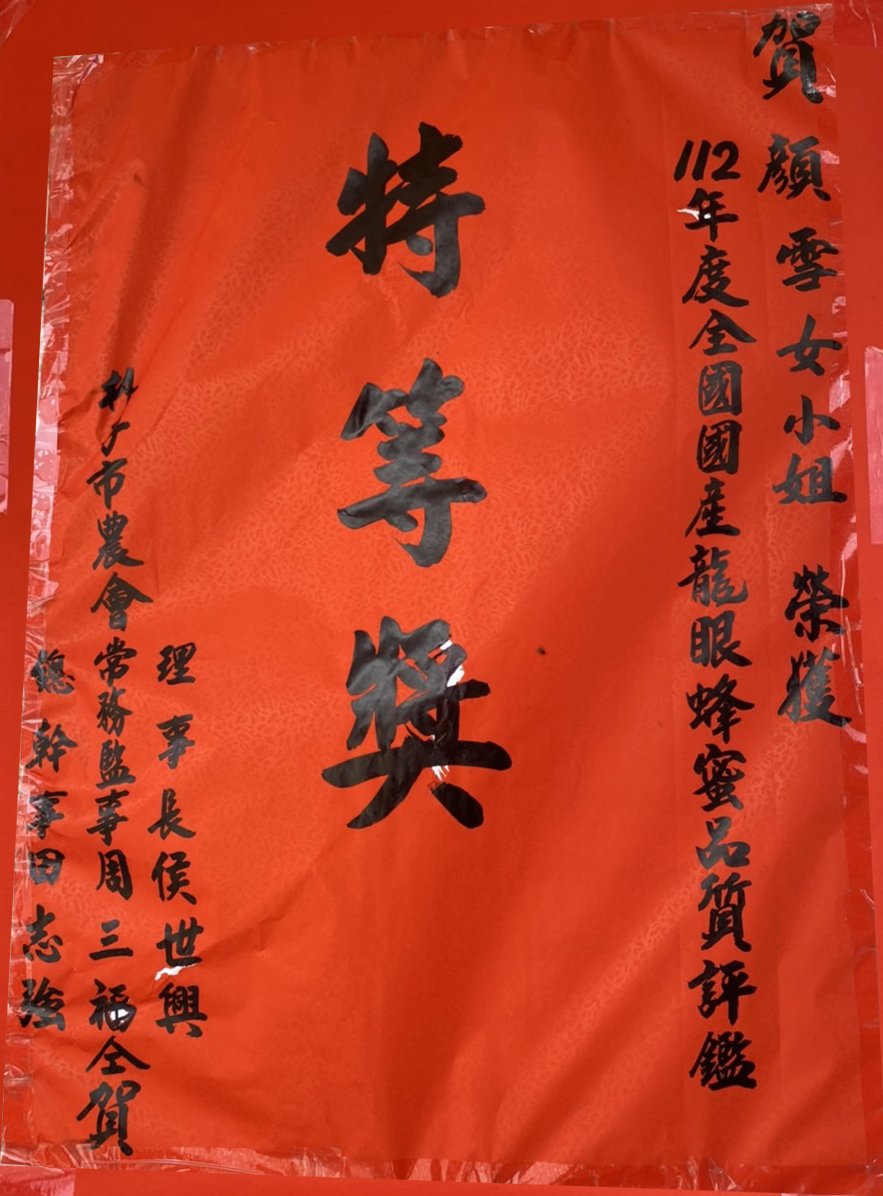 賀 顏雪女小姐 榮獲
112年度全國國產龍眼蜂蜜品質評鑑
特等獎
理事長侯世興
朴子市農會常務監事周三福仝賀
總幹事田志強